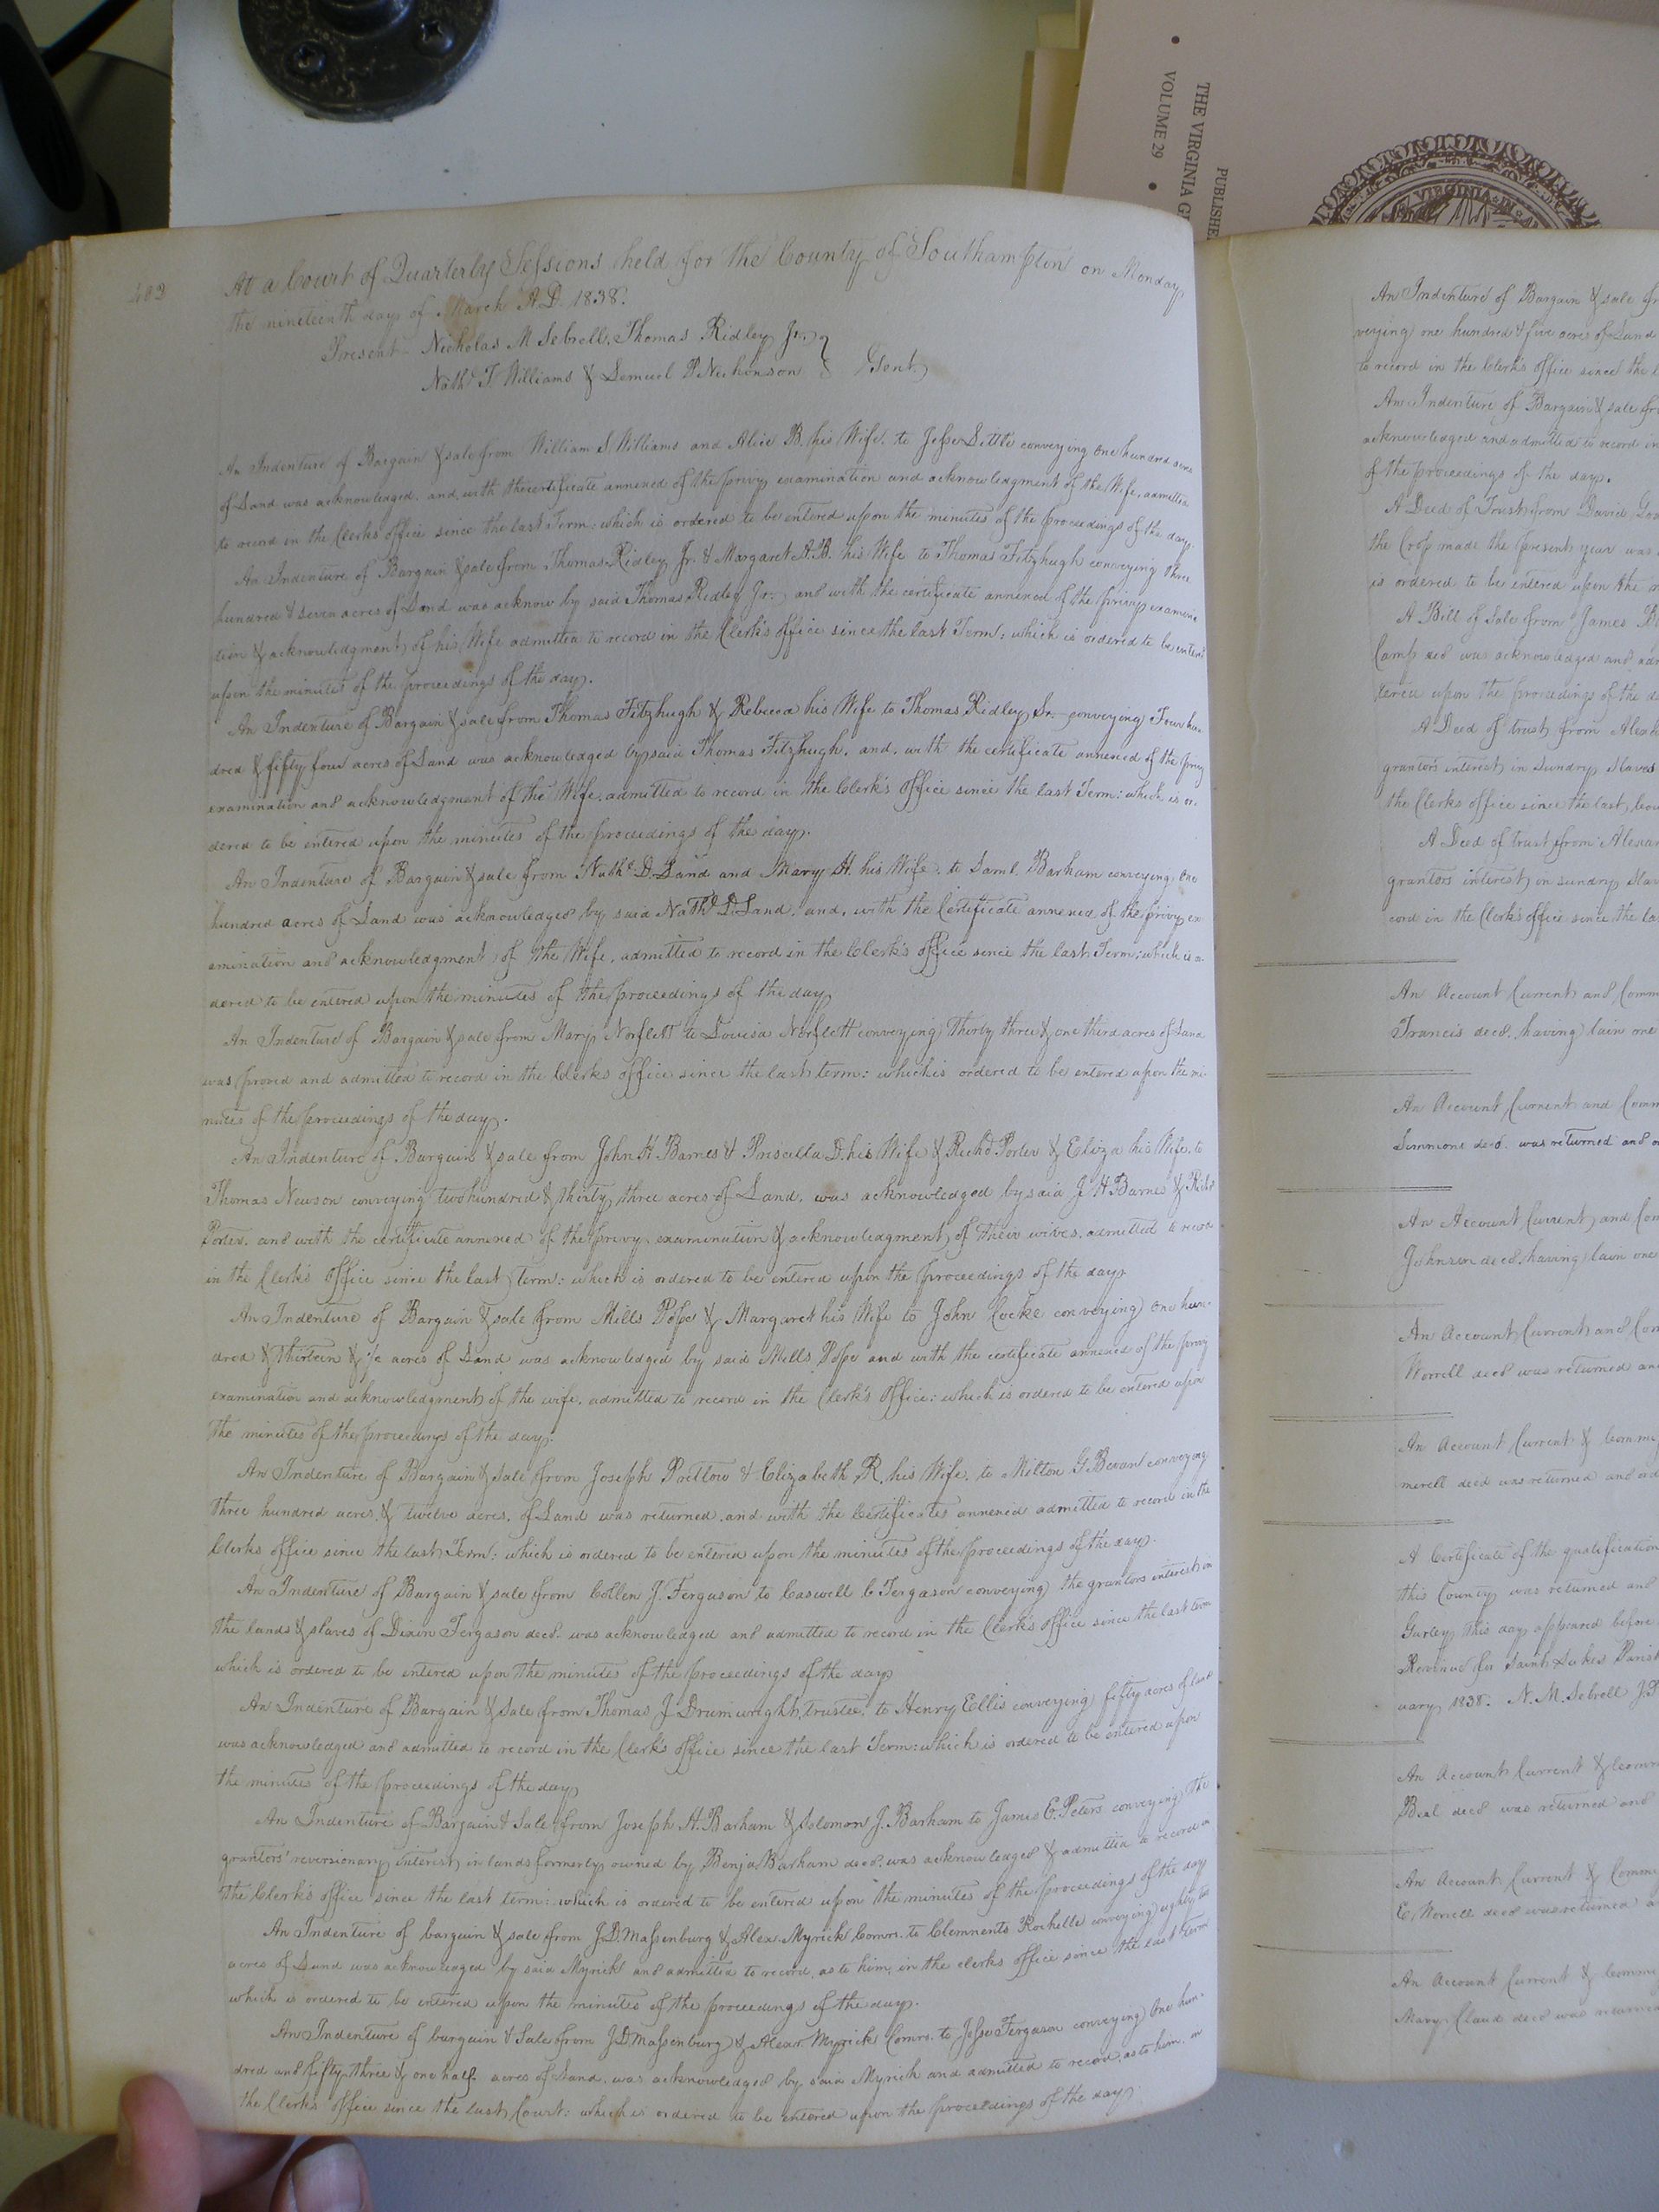 THE VIRGINIA
VOLUME 29
PUBLISHE
VIRGINIA
402
At a Court of Quarterly Sessions held for the County of Southampton on Monday
the nineteenth day of March A.D. 1838.
Present Nicholas M Sebrell, Thomas Ridley Jr.
Nathl. T Williams & Lemuel P Nicholson Gent.
An Indenture of Bargain & sale from William S. Williams and Alice B. his Wife, to Jesse Little conveying one hundred acres
of Land was acknowledged, and, with the certificate annexed of the privy examination and acknowledgment of the Wife, admitted
to record in the Clerk's office since the last Term: which is ordered to be entered upon the minutes of the proceedings of the day.
An Indenture of Bargain & sale from Thomas Ridley Jr. & Margaret A.B. his Wife to Thomas Fitzhugh conveying three
hundred & seven acres of Land was acknow by said Thomas Ridley Jr. and with the certificate annexed of the privy examina
tion & acknowledgment of his Wife admitted to record in the Clerk's office since the last Term: which is ordered to be entered
upon the minutes of the proceedings of the day.
An Indenture of Bargain & sale from Thomas Fitzhugh & Rebecca his Wife to Thomas Ridley Sr. conveying Four hun-
dred & fifty four acres of Land was acknowledged by said Thomas Fitzhugh, and, with the certificate annexed of the privy
examination and acknowledgment of the Wife, admitted to record in the Clerk's Office since the last Term: which is or-
dered to be entered upon the minutes of the proceedings of the day.
An Indenture of Bargain & sale from Nathl. D. Land and Mary H. his Wife, to Saml. Barham conveying One
hundred acres of Land was acknowledged by said Nathl. D. Land, and, with the Certificate annexed of the privy ex
amination and acknowledgment of the Wife, admitted to record in the Clerk's office since the last Term; which is or
dered to be entered upon the minutes of the proceedings of the day
An Indenture of Bargain & sale from Mary Norflett to Louisa Norflett conveying Thirty three & one third acres of Land
was proved and admitted to record in the Clerks office since the last term: which is ordered to be entered upon the mi-
nutes of the proceedings of the day.
An Indenture of Bargain & sale from John H Barnes & Priscilla D. his Wife & Richd Porter & Eliza his Wife, to
Thomas Newson conveying two hundred & thirty three acres of Land, was acknowledged by said J H Barnes & Richd
Porter, and with the certificate annexed of the privy examination & acknowledgment of their wives, admitted to record
in the Clerk's Office since the last term: which is ordered to be entered upon the proceedings of the day
An Indenture of Bargain & sale from Mills Pope & Margaret his Wife to John Cocke conveying One hun-
dred & thirteen & acres of Land was acknowledged by said Mills Pope and with the certificate annexed of the privy
examination and acknowledgment of the wife, admitted to record in the Clerk's Office: which is ordered to be entered upon
the minutes of the proceedings of the day.
An Indenture of Bargain & sale from Joseph Prettow & Elizabeth R. his Wife, to Milton G. Bevan conveying
three hundred acres, & twelve acres, of Land was returned, and with the Certificates annexed admitted to record in the
Clerks office since the last Term: which is ordered to be entered upon the minutes of the proceedings of the day.
An Indenture of Bargain & sale from Collen J. Ferguson to Caswell C Fergason conveying the grantors interest in
the lands & slaves of Dixin Fergason decd. was acknowledged and admitted to record in the Clerk's office since the last term
which is ordered to be entered upon the minutes of the proceedings of the day
An Indenture of Bargain & Sale from Thomas J Drumwright, trustee, to Henry Ellis conveying fifty acres of land
was acknowledged and admitted to record in the Clerk's office since the last Term: which is ordered to be entered upon
the minutes of the proceedings of the day
An Indenture of Bargain & Sale from Joseph H. Barham & Solomon J. Barham to James E. Peters conveying the
grantors' reversionary interest in lands formerly owned by Benja Barham decd. was acknowledged & admitted to record in
the Clerk's office since the last term: which is ordered to be entered upon the minutes of the proceedings of the day
An Indenture of bargain & sale from J.D. Massenburg & Alexr. Myrick Comrs. to Clemments Rochelle conveying eighty two
acres of Land was acknowledged by said Myrick and admitted to record, as to him, in the clerks office since the last term
which is ordered to be entered upon the minutes of the proceedings of the day.
An Indenture of bargain & Sale from J D Massenburg & Alexr. Myrick Comrs. to Jesse Fergason conveying One hun-
dred and fifty three & one half acres of Land, was acknowledged by said Myrick and admitted to record, as to him, in
the Clerk's office since the last Court: which is ordered to be entered upon the proceedings of the day.
An Indenture of Bargain & sale fr
veying one hundred & five acres of Land
to record in the Clerk's Office since the
An Indenture of Bargain & sale fr
acknowledged and admitted to record in
of the proceedings of the day.
A Deed of Trust from David
the Crop made the present year was
is ordered to be entered upon the m
A Bill of Sale from James
Camp was acknowledged and
tered upon the proceedings of the
A Deed of trust from
grantor's interest in sundry slaves
the Clerks office since the last
A Deed of trust from
grantors interest in sundry
cord in the Clerk's office since the la
An Account Current and Comm
Francis decd. having lain one
An Account Current and Comm
Simmons decd. was returned and o
An Account Current and Com
Johnson decd having lain one
An Account Current and Com
Worrell decd was returned an
An Account Current & Commi
merell decd was returned and ord
A Certificate of the qualification
this County was returned and
Gurley this day appeared before
Revenue for Saint Lukes Parish
uary 1838. N. M. Sebrell J.P
An Account Current & Comm
Beal decd was returned and
An Account Current & Commi
E, Worrell decd was returned a
An Account Current & Commi
Mary Claud decd was returned